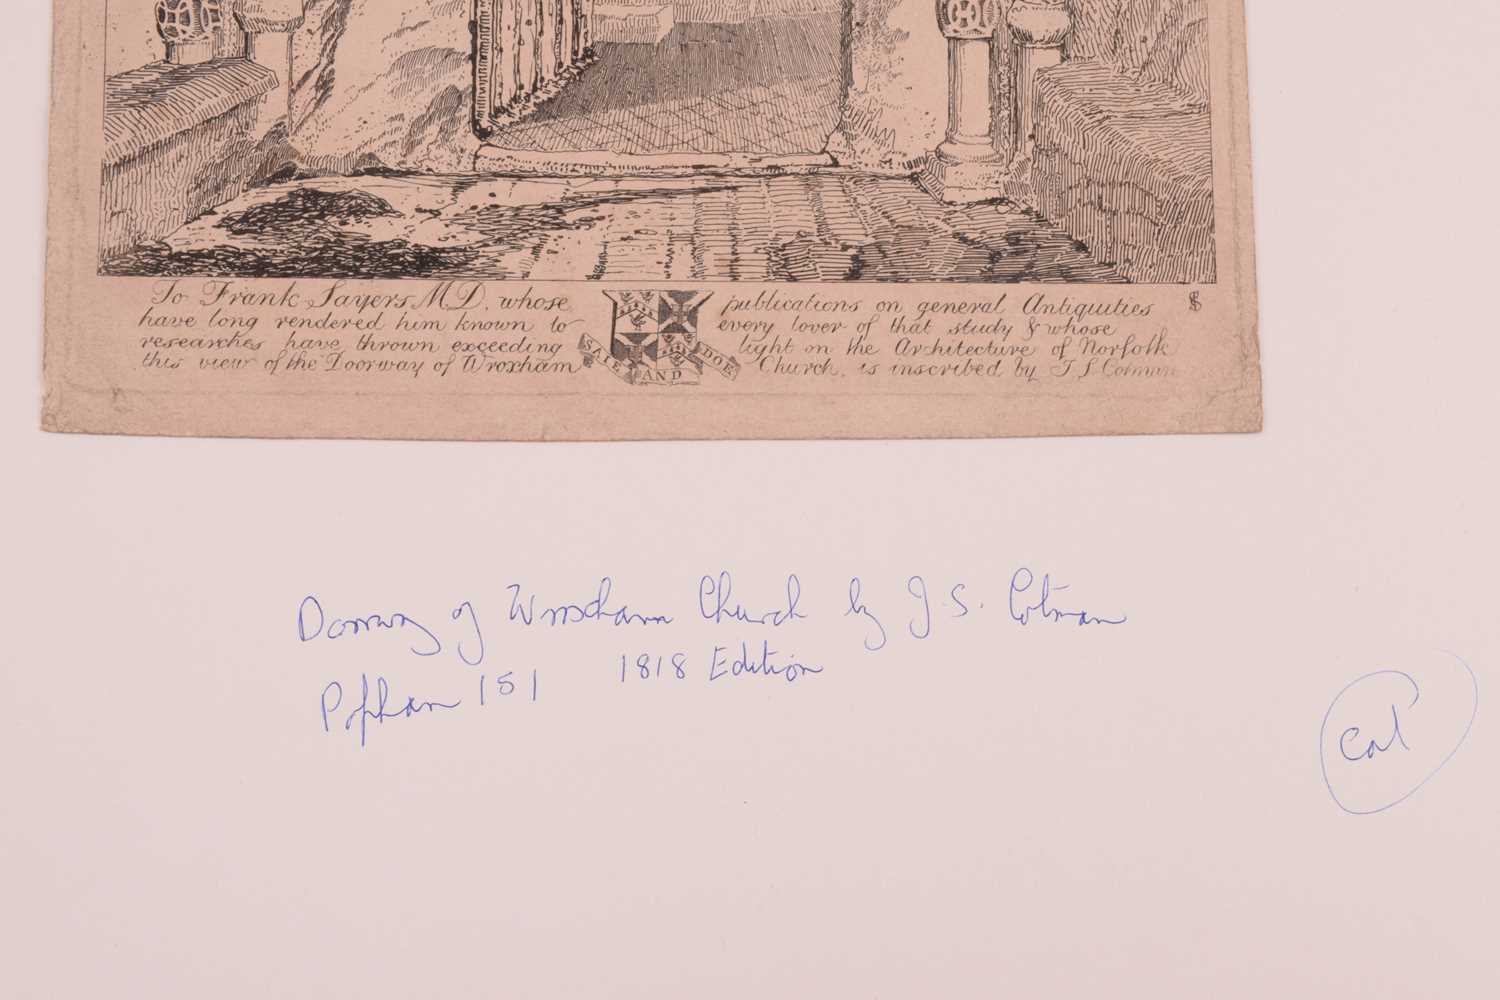 To Frank Sayers M.D. whose publications on general Antiquities
have long rendered him known to every lover of that study & whose
researches have thrown exceeding light on the Architecture of Norfolk
this view of the Doorway of Wroxham Church, is inscribed by J S Cotman
SAIE AND DOE
Doorway of Wroxham Church by J. S. Cotman
Popham 151 1818 Edition
Cat